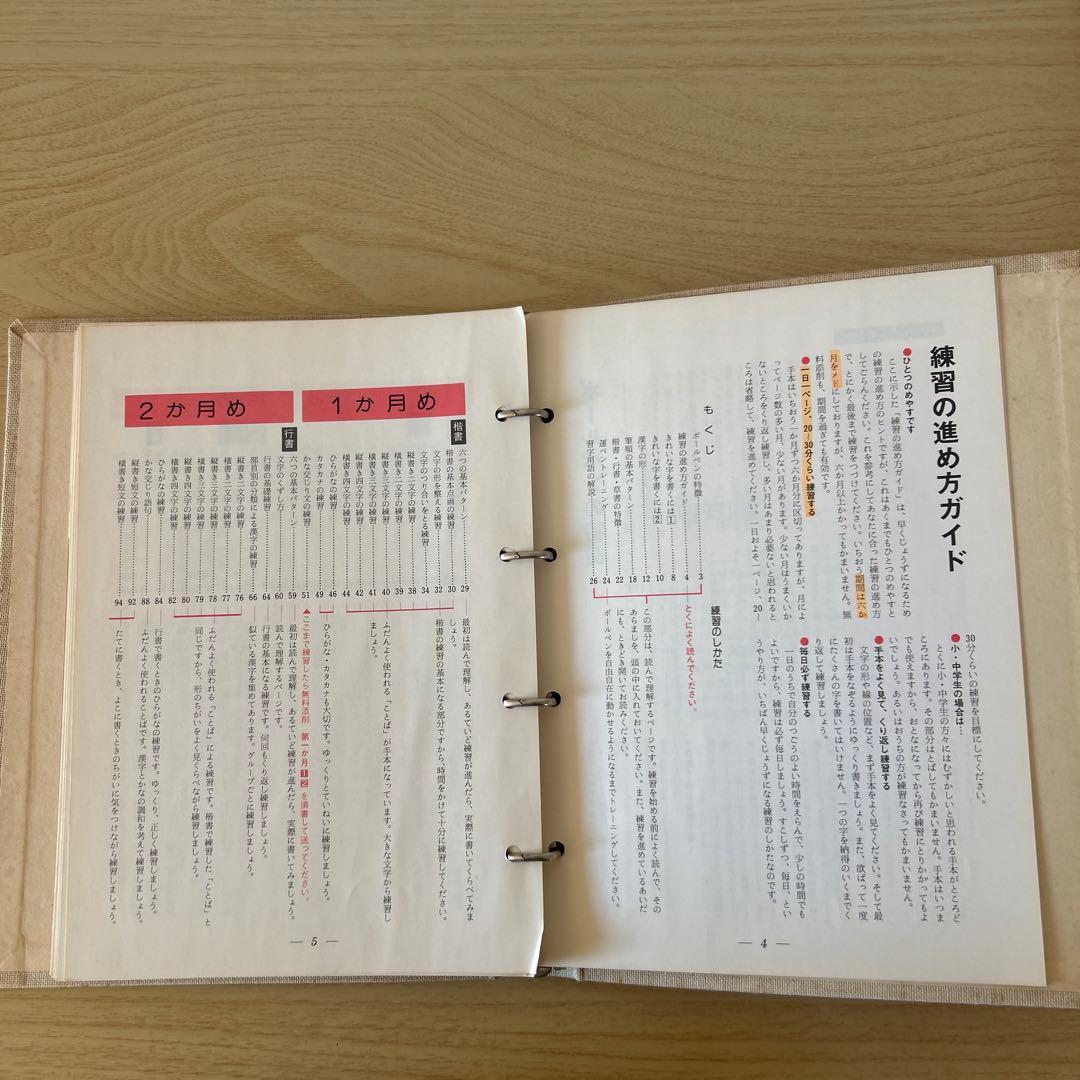 練習の進め方ガイド
●ひとつのめやすです
ここに示した「練習の進め方ガイド」は、早くじょうずになるため
の練習の進め方のヒントですが、これはあくまでもひとつのめやすと
してごらんください。これを参考にしてあなたに合った練習の進め方
で、とにかく最後まで練習をつづけてください。いちおう期間は六か
月をメドにしておりますが、六か月以上かかってもかまいません。無
料添削も、期間を過ぎても有効です。
●一日一ページ、20〜30分くらい練習する
手本はいちおう一か月ずつ六か月分に区切ってありますが、月によ
ってページ数の多い月、少ない月があります。少ない月はうまくいか
ないところをくり返し練習し、多い月はあまり必要ないと思われると
ころは省略して、練習を進めてください。一日およそ一ページ、20〜
30分くらいの練習を目標にしてください。
●小・中学生の場合は…
とくに小・中学生の方々にはむずかしいと思われる手本がところど
ころにあります。その部分はとばしてもかまいません。手本はいつま
でも使えますから、おとなになってから再び練習にとりかかってもよ
いでしょう。あるいはおうちの方が練習なさってもかまいません。
●手本をよく見て、くり返し練習する
文字の形や線の位置など、まず手本をよく見てください。そして最
初は手本をなぞるようにゆっくり書きましょう。また、欲ばって一度
にたくさんの字を書いてはいけません。一つの字を納得のいくまでく
り返して練習しましょう。
●毎日必ず練習する
一日のうちで自分のつごうのよい時間をえらんで、少しの時間でも
よいですから、練習は必ず毎日しましょう。すこしずつ、毎日、とい
うやり方が、いちばん早くじょうずになる練習のしかたなのです。
もくじ
練習のしかた
ボールペンの特徴 3
練習の進め方ガイド 4
きれいな字を書くには1 8
きれいな字を書くには2 10
漢字の形 12
筆順の基本パターン 18
楷書・行書・草書の特徴 22
運ペントレーニング 24
習字用語の解説 26
とくによく読んでください。
この部分は、読んで理解するページです。練習を始める前によく読んで、その
あらましを、頭の中に入れておいてください。また、練習を進めているあいだ
にも、ときどき開いてお読みください。
ボールペンを自由自在に動かせるようになるまでトレーニングしてください。
— 4 —
1か月め
楷書
六つの基本パターン 29
楷書の基本点画の練習 30
文字の形を整える練習 32
文字のつり合いをとる練習 34
縦書き二文字の練習 36
縦書き三文字の練習 38
縦書き四文字の練習 39
横書き二文字の練習 40
横書き三文字の練習 41
横書き四文字の練習 42
横書き四文字の練習 44
ひらがなの練習 46
カタカナの練習 49
かな交じり文の練習 51
最初は読んで理解し、あるていど練習が進んだら、実際に書いてくらべてみま
しょう。
楷書の練習の基本になる部分ですから、時間をかけて十分に練習してください。
ふだんよく使われる「ことば」が手本になっています。大きな文字から練習し
ましょう。
ひらがな・カタカナも大切です。ゆっくりとていねいに練習しましょう。
▲ここまで練習したら無料添削 第一か月12を清書して送ってください。
2か月め
行書
六つの基本パターン 59
文字のくずし方 60
行書の基礎練習 64
部首別の分類による漢字の練習 66
縦書き二文字の練習 76
縦書き三文字の練習 77
縦書き四文字の練習 78
横書き二文字の練習 79
横書き三文字の練習 80
横書き四文字の練習 82
ひらがなの練習 84
かな交じり語句 88
縦書き短文の練習 92
横書き短文の練習 94
最初は読んで理解し、あるていど練習が進んだら、実際に書いてみましょう。
読んで理解するページです。
行書の基本になる練習です。何回もくり返し練習しましょう。
似ている漢字を集めてあります。グループごとに練習しましょう。
ふだんよく使われる「ことば」による練習です。楷書で練習した「ことば」と
同じですから、形のちがいをよく見くらべながら練習しましょう。
行書で書くときのひらがなの練習です。ゆっくり、正しく練習しましょう。
ふだんよく使われることばです。漢字とかなの調和を考えて練習しましょう。
たてに書くとき、よこに書くときのちがいに気をつけながら練習しましょう。
— 5 —